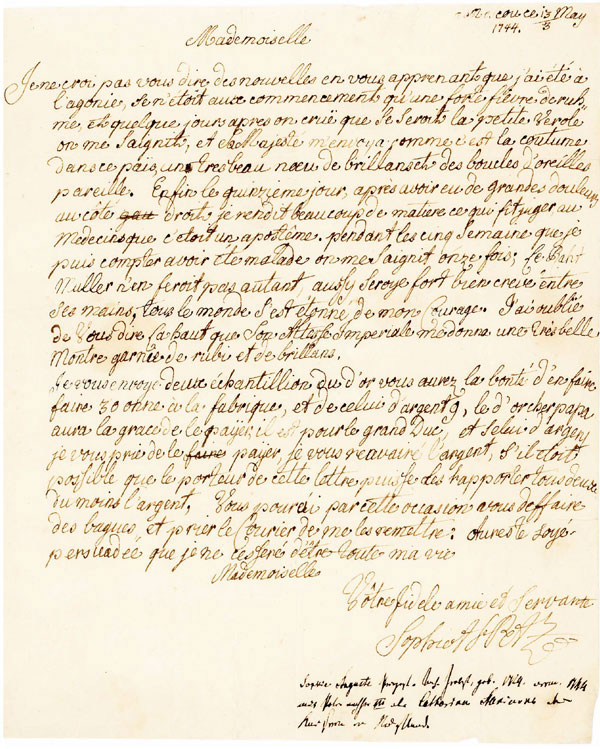 Moscou ce 13/3 May
1744.
Mademoiselle
Je ne croi pas vous dire des nouvelles en vous apprenant que j'ai été à
l'agonie, se n'étoit aux commencement qu'une forte fièvre de ruh-
me, et quelque jours apres on crüe que se seroit la petite verole
on me saignit, et sa Majesté m'envoya comme c'est la coutume
dans ce païs, un tres beau nœu de brillans et des boucles d'oreilles
pareille. Enfin le quinzième jour, apres avoir eu de grandes douleurs
au côté droit, je rendit beaucoup de matiere ce qui fit juger au
Medecins que c'etoit un apostème. pendant les cinq semaine que je
puis compter avoir été malade on me saignit onze fois,
n'en feroit pas autant, aussy seroye fort bien crevé entre
ses mains, tous le monde s'est etonné de mon Courage. J'ai oublié
de vous dire la haut que Son Altesse imperiale m'a donna une tres belle
Montre garnie de rubi et de brillans.
Je vous envoye deux échantillion du d'or vous aurez la bonté d'en faire
faire 30 onne à la fabrique, et de celui d'argent 9, le d'or cher papa
aura la grace de le payer, il est pour le grand Duc, et selui d'argent
je vous prie de le faire payer, je vous renvaire l'argent, s'il étoit
possible que le porteur de cette lettre puisse des rapporter tous deux
du moins l'argent. Vous pourei par cette occasion vous deffaire
des bagues, et prier le Courier de me les remettre: Au reste soyé
persuadée que je ne cesseré d'être toute ma vie
Mademoiselle
Vôtre fidele amie et Servante
Sophie A F
Sophie Auguste
Peter III als Catharina